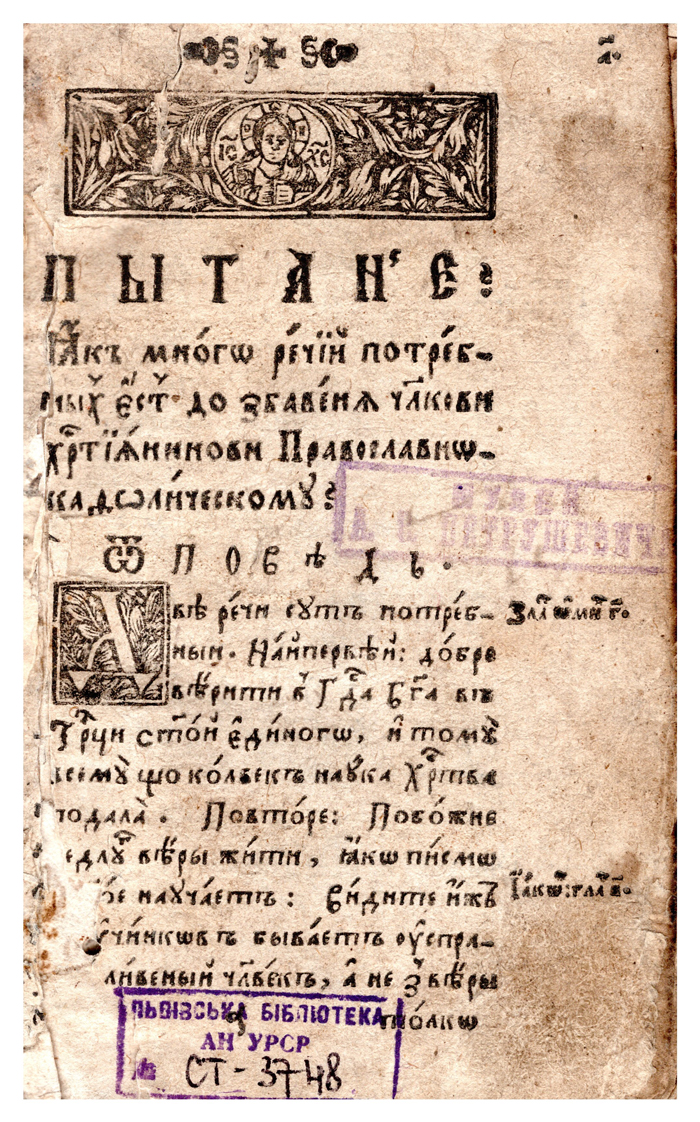 а҃.
І҃С Х҃С
ПЫТАН'Е:
Ꙗ҆́къ мно́гѡ ре́чїй потре́б-
ныхъ є҆́стъ до збаве́нѧ чл҃кови
хрⷭ҇тїѧ́нинови Православнѡ-
каѳолі́ческому?
Ѿ П О В Ѣ Д Ь.
Двѣ ре́чи сутъ потре́б-
ныи. На́йпервѣй: до́бре
вѣ́рити в̾ Гдⷭ҇а Бг҃а въ
Трⷪ҇ци ст҃ой є҆ди́ногѡ, и҆ тому̀
всему̀ що ко́лвекъ нау́ка Хрⷭ҇тва
подала̀. Повто́ре: Побо́жне
ведлу́гъ вѣ́ры жи́ти, ꙗ҆́кѡ писмѡ
науча́етъ: Ви́дите и҆́жъ
ᲂу҆чи́нкѡвъ быва́етъ ᲂу҆спра-
ли́веный чл҃ве́къ, а҆ не з̾ вѣ́ры
то́лкѡ
Злат̾ ѡм̾и г҃.
І҆а́кѡв: глав҃ в҃.
ЛЬВІВСЬКА БІБЛІОТЕКА
АН УРСР
№ СТ-3748